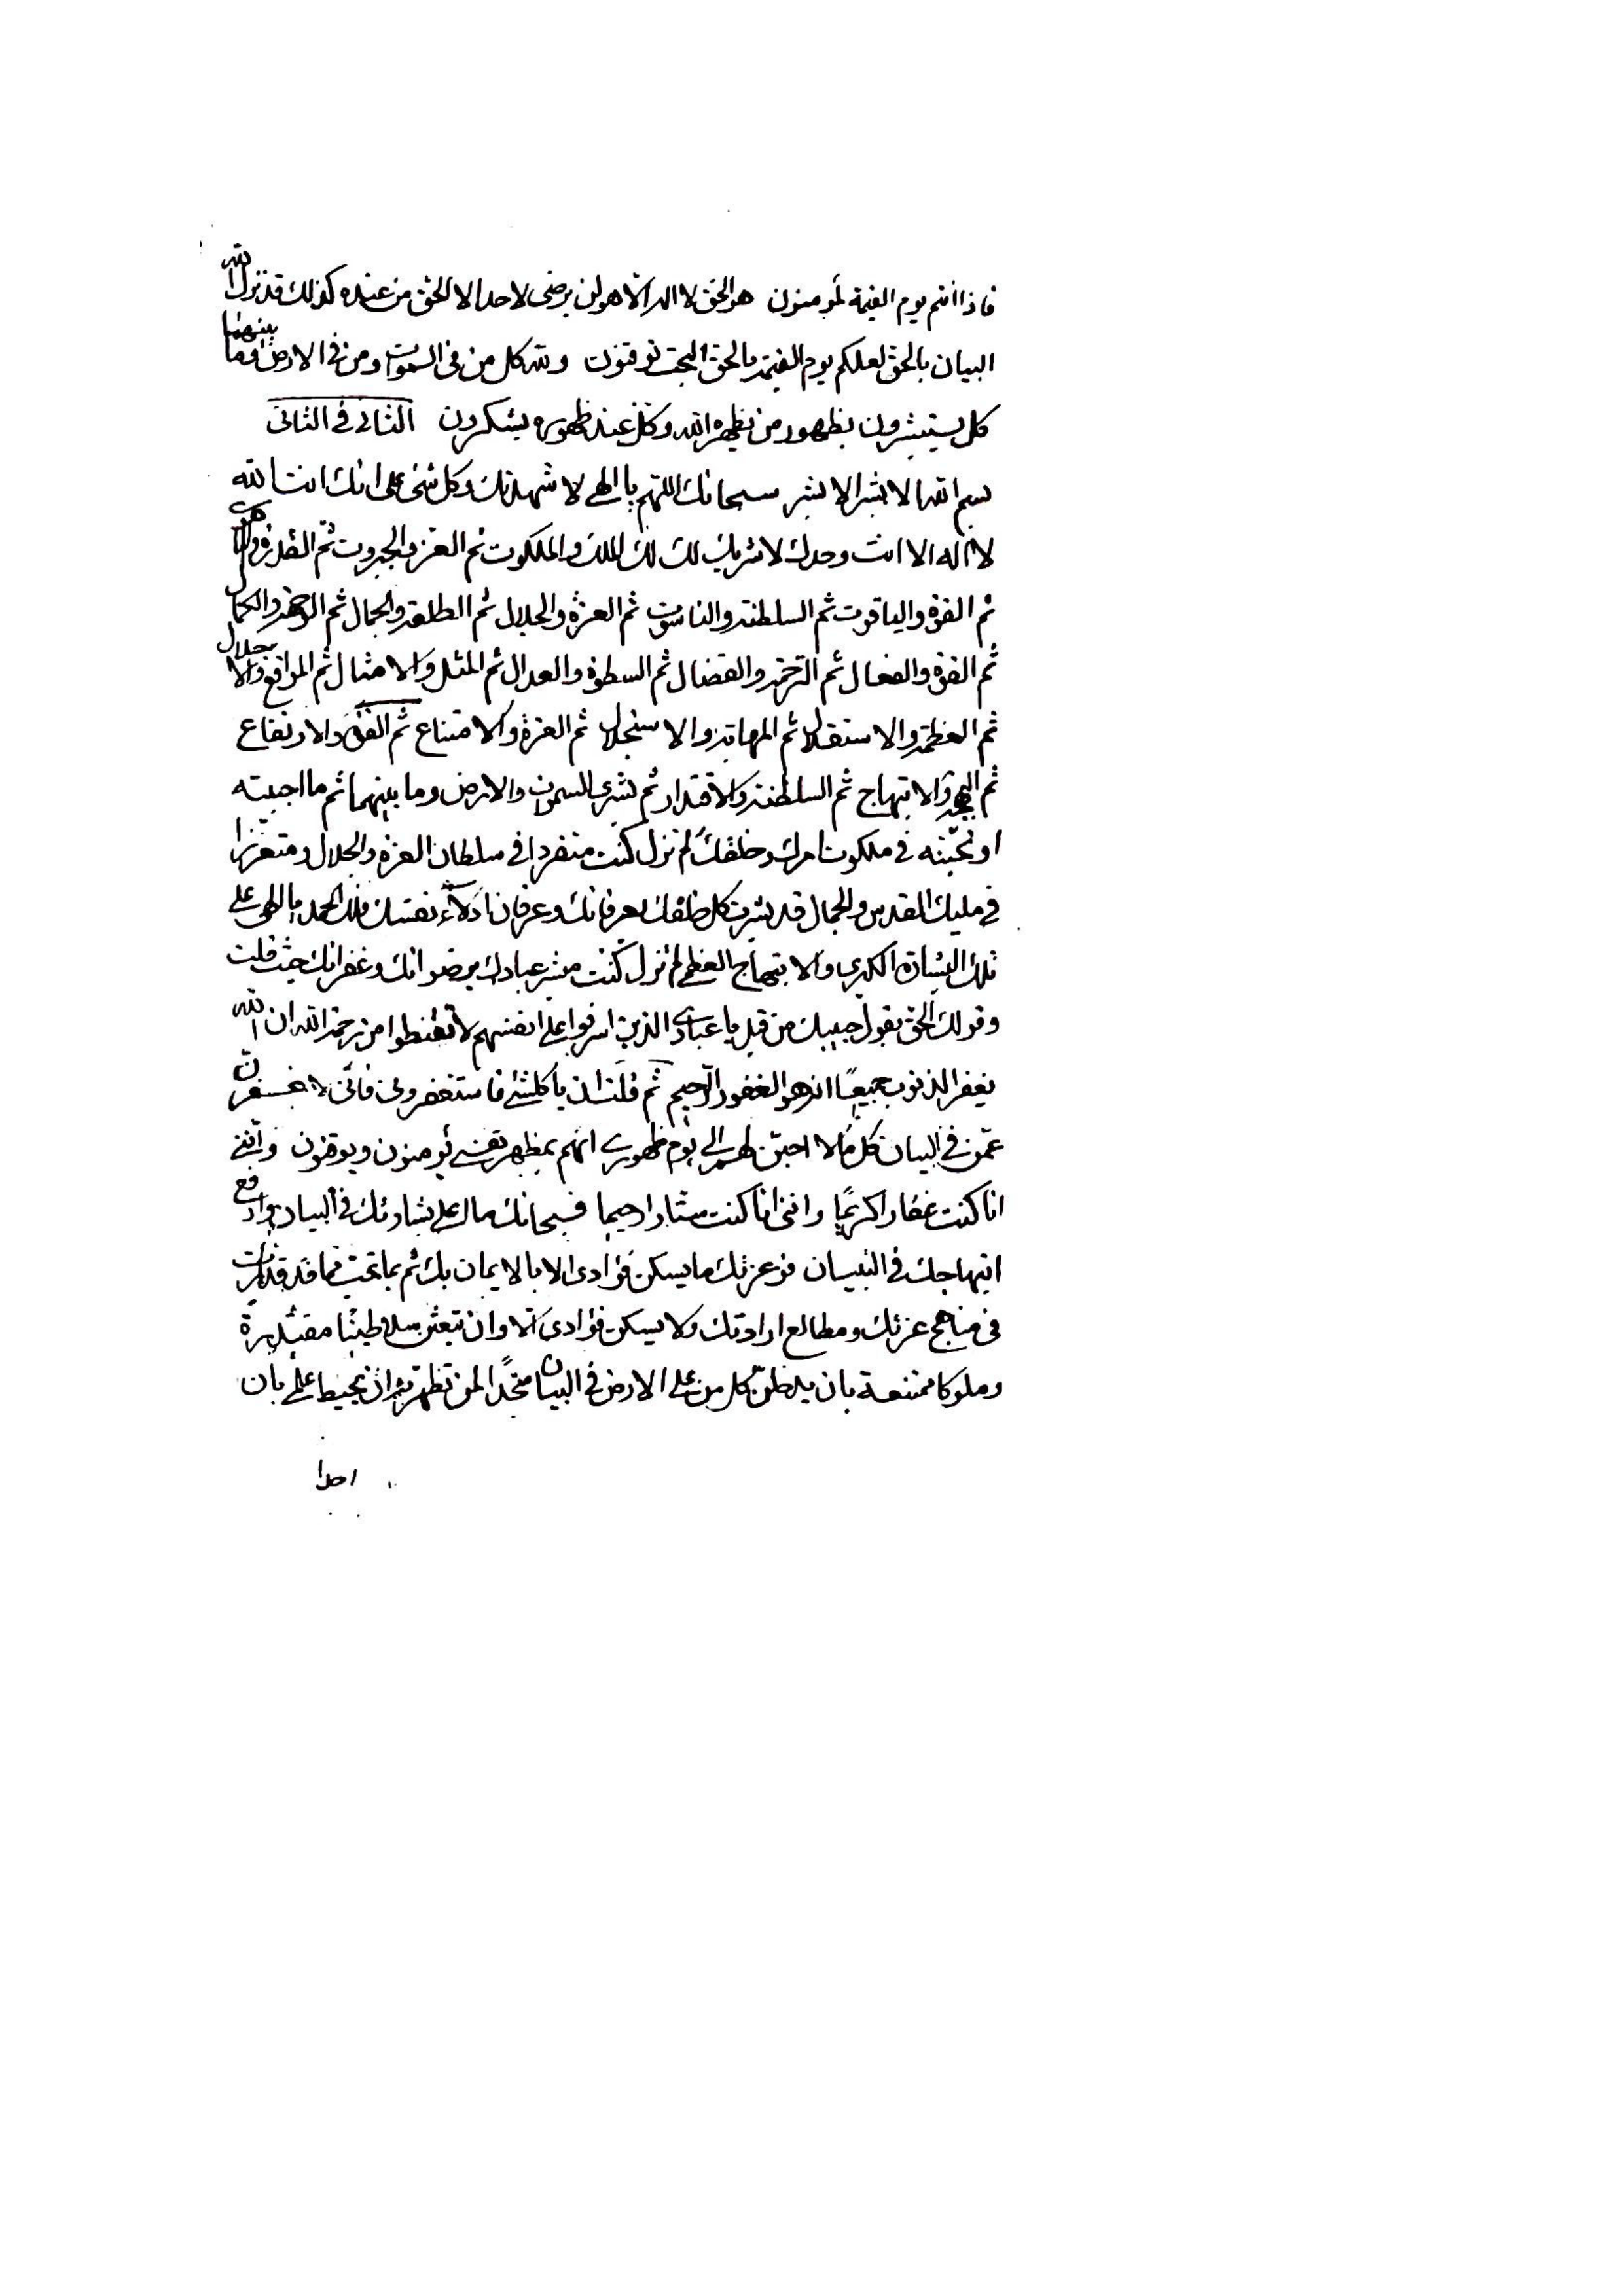 فاذا انتم يوم القيمة لتومنون هو الحق لا اله الا هو لن يرضى لاحد الا الحق من عنده كذلك قد نزل الله
البيان بالحق لعلكم يوم القيمة بالحق البحت توقنون ولله كل من فى السموات ومن فى الارض وما بينهما
كل يستبشرون بظهور من يظهره الله وكل عند ظهوره يشكرون الثانى فى الثانى
بسم الله الابشر الابشر سبحانك اللهم يا الهى لاشهدنك وكل شئ على انك انت الله
لا اله الا انت وحدك لا شريك لك لك الملك والملكوت ثم العز والجبروت ثم القدرة واللاهوت
ثم القوة والياقوت ثم السلطنة والناسوت ثم العزة والجلال ثم الطلعة والجمال ثم الوجهة والكمال
ثم القوة والفعال ثم الرحمة والفضال ثم السطوة والعدال ثم المثل والامثال ثم المواقع والاجلال
ثم العظمة والاستقلال ثم المهابة والاستجلال ثم العزة والامتناع ثم القوة والارتفاع
ثم البهجة والابتهاج ثم السلطنة والاقتدار ثم بشرى السموات والارض وما بينهما ثم ما احببته
او تحبنه فى ملكوت امرك وخلقك لم تزل كنت متفردا فى سلطان العزة والجلال ومتعززا
فى مليك القدس والجمال قد بشرت كل خلقك بعرفانك وعرفان ادلاء نفسك فلك الحمد يا الهى على
تلك البشارة الكبرى والابتهاج العظمى لم تزل كنت مبشر عبادك برضوانك وغفرانك حيث قلت
وقولك الحق بقول حبيبك من قبل يا عبادى الذين اسرفوا على انفسهم لا تقنطوا من رحمة الله ان الله
يغفر الذنوب جميعًا انه هو الغفور الرحيم ثم قلت ان يا كلشئ فاستغفرونى فانى لاغفرن
عمن فى البيان كل ما لا احبن لهم الى يوم ظهورى انهم بمظهر نفسى يؤمنون ويوقنون واننى
انا كنت غفارا كريمًا واننى انا كنت ستارا رحيما فسبحانك مااعلى بشارتك فى البيان وارفع
ابتهاجك فى التبيان فوعزتك ما يسكن فؤادى الا بالايمان بك ثم بما تحب مما قد قدرت
فى مناهج عزتك ومطالع ارادتك ولا يسكن فؤادى الا وان تبعثن سلاطينًا مقتدرة
وملوكا ممتنعة بان يدخلن كل من على الارض فى البيان متخذًا لمن تظهرنه ان يحيط علمى بان
احدا